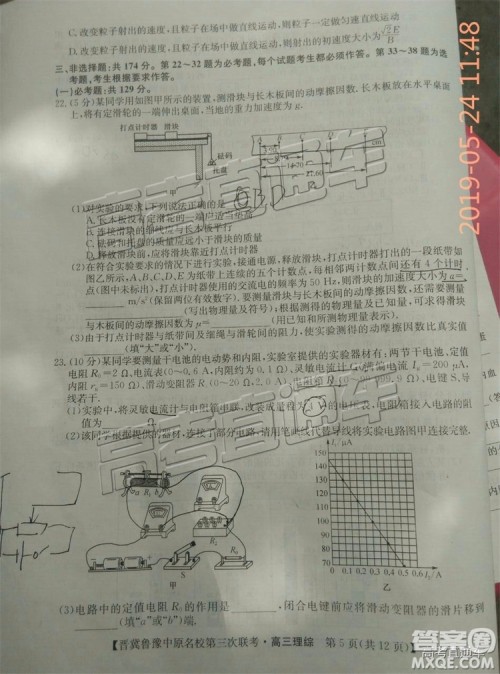 C. 改变粒子射出的速度，且粒子在场中做直线运动，则粒子一定做匀速直线运动
D. 改变粒子射出的速度，且粒子在场中做直线运动，则射出的初速度大小为
三、非选择题：共 174 分。第 22～32 题为必考题，每个试题考生都必须作答。第 33～38 题为选
考题，考生根据要求作答。
(一)必考题：共 129 分。
22. (5 分)某同学用如图甲所示的装置，测滑块与长木板间的动摩擦因数. 长木板放在水平桌面
上，将有定滑轮的一端伸出桌面，当地的重力加速度为 g.
打点计时器 滑块
砝码
托盘
甲
(1)对实验的要求，下列说法正确的是
A. 长木板没有定滑轮的一端应适当垫高
B. 连接滑块的细线应与长木板平行
C. 砝码和托盘的质量应远小于滑块的质量
D. 释放滑块前，应将滑块靠近打点计时器
(2)在符合实验要求的情况下进行实验，接通电源，释放滑块，打点计时器打出的一段纸带如
图乙所示，A、B、C、D、E 为纸带上连续的五个计数点，每相邻两计数点间还有 4 个计时
点(图中未标出)，打点计时器使用的交流电的频率为 50 Hz，则滑块的加速度大小为 a=
m/s²(保留两位有效数字). 要测量滑块与长木板间的动摩擦因数，还需要测量
(写出物理量及符号)；根据测得的物理量及已知量，可求得滑块
与木板间的动摩擦因数为 μ= (用已知和所测物理量表示).
(3)由于打点计时器与纸带间及细绳与滑轮间的阻力，使实验测得的动摩擦因数比真实值
(填“大”或“小”).
23. (10 分)某同学要测量干电池的电动势和内阻，实验室提供的实验器材有：两节干电池、定值
电阻 R₀=2 Ω、电流表(0~0.6 A，内阻约为 0.1 Ω)、灵敏电流计 G(满偏电流 Ig=200 μA，
内阻 rg=150 Ω)、滑动变阻器 R₁(0~20 Ω，2.0 A)、
线若干.
(1)实验中，将灵敏电流计与电阻箱串联，改装成量程为 3 V 的电压表，电阻箱接入电路的阻
值为
(2)该同学根据提供的器材，连接了部分电路，请用笔画线代替导线将实验电路图甲连接完整.
a R₁ b
甲
I₁/μA
150
140
130
120
110
100
90
80
70
60
50
0 0.1 0.2 0.3 0.4 0.5 0.6
乙
(3)电路中的定值电阻 R₀ 的作用是 ，闭合电键前应将滑动变阻器的滑片移到
(填“a”或“b”)端.
【晋冀鲁豫中原名校第三次联考·高三理综 第 5 页(共 12 页)】
2019-05-24 11:48
高考直通车
答案圈
MXQE.COM